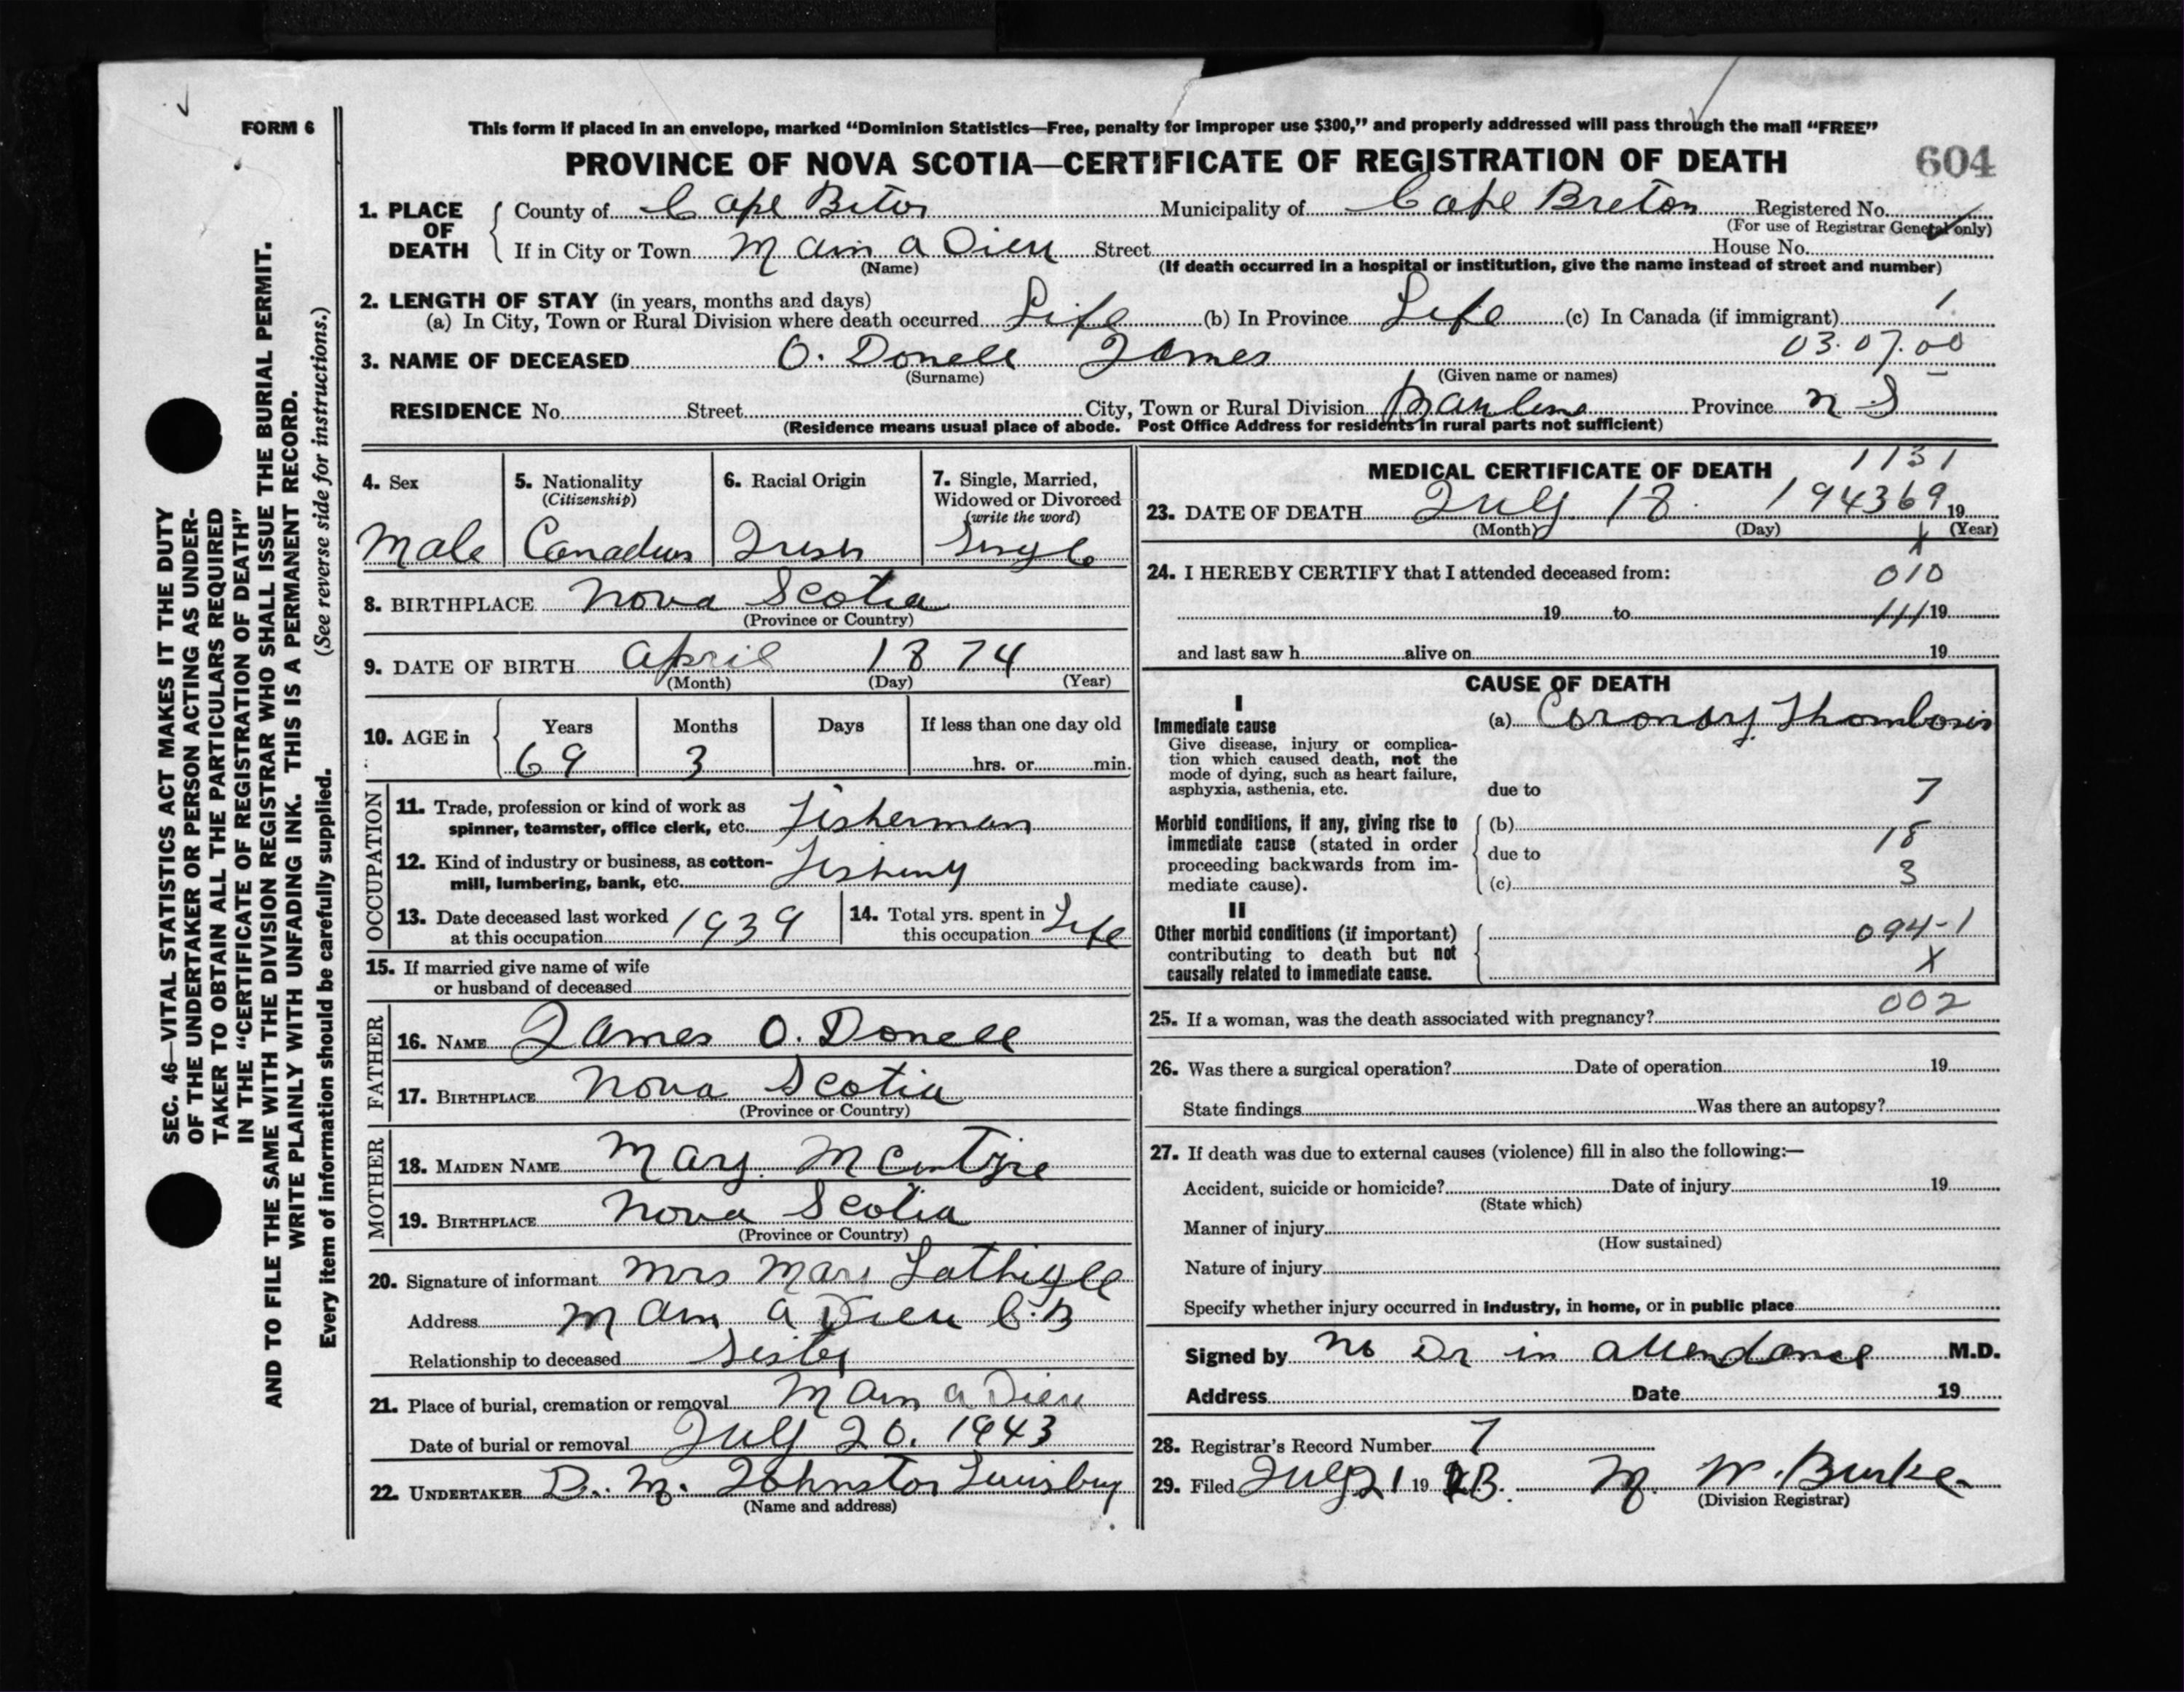 FORM 6
This form if placed in an envelope, marked “Dominion Statistics—Free, penalty for improper use $300,” and properly addressed will pass through the mail “FREE”
PROVINCE OF NOVA SCOTIA—CERTIFICATE OF REGISTRATION OF DEATH 604
1. PLACE OF DEATH
County of Cape Beton Municipality of Cape Breton Registered No.
(For use of Registrar General only)
If in City or Town Main a Dieu Street House No.
(Name) (If death occurred in a hospital or institution, give the name instead of street and number)
2. LENGTH OF STAY (in years, months and days)
(a) In City, Town or Rural Division where death occurred Life (b) In Province Life (c) In Canada (if immigrant) 1
3. NAME OF DECEASED O. Donell James 03.07.00
(Surname) (Given name or names)
RESIDENCE No. Street City, Town or Rural Division Province N S
(Residence means usual place of abode. Post Office Address for residents in rural parts not sufficient)
4. Sex
Male
5. Nationality
(Citizenship)
Canadian
6. Racial Origin
Irish
7. Single, Married,
Widowed or Divorced
(write the word)
Single
8. BIRTHPLACE Nova Scotia
(Province or Country)
9. DATE OF BIRTH April 1874
(Month) (Day) (Year)
10. AGE in
Years Months Days If less than one day old
69 3 hrs. or min.
OCCUPATION
11. Trade, profession or kind of work as
spinner, teamster, office clerk, etc. Fisherman
12. Kind of industry or business, as cotton-
mill, lumbering, bank, etc. Fishing
13. Date deceased last worked
at this occupation 1939
14. Total yrs. spent in
this occupation Life
15. If married give name of wife
or husband of deceased
FATHER
16. NAME James O. Donell
17. BIRTHPLACE Nova Scotia
(Province or Country)
MOTHER
18. MAIDEN NAME Mary McIntyre
19. BIRTHPLACE Nova Scotia
(Province or Country)
20. Signature of informant Mrs Mary
Address Main a Dieu C.B
Relationship to deceased Sister
21. Place of burial, cremation or removal Main a Dieu
Date of burial or removal July 20. 1943
22. UNDERTAKER D. M. Johnston Louisburg
(Name and address)
MEDICAL CERTIFICATE OF DEATH 1131
23. DATE OF DEATH July 18 194369 19
(Month) (Day) (Year)
X
24. I HEREBY CERTIFY that I attended deceased from: 010
19 to 111 19
and last saw h alive on 19
CAUSE OF DEATH
I
Immediate cause
Give disease, injury or complica-
tion which caused death, not the
mode of dying, such as heart failure,
asphyxia, asthenia, etc.
(a) Coronary Thombosis
due to 7
Morbid conditions, if any, giving rise to
immediate cause (stated in order
proceeding backwards from im-
mediate cause).
(b)
due to 18
(c) 3
II
Other morbid conditions (if important)
contributing to death but not
causally related to immediate cause.
094-1
X
002
25. If a woman, was the death associated with pregnancy?
26. Was there a surgical operation? Date of operation 19
State findings Was there an autopsy?
27. If death was due to external causes (violence) fill in also the following:—
Accident, suicide or homicide? Date of injury 19
(State which)
Manner of injury
(How sustained)
Nature of injury
Specify whether injury occurred in industry, in home, or in public place
Signed by No Dr in attendance M.D.
Address Date 19
28. Registrar's Record Number 7
29. Filed July 21 19 M. W. Burke
(Division Registrar)
SEC. 46—VITAL STATISTICS ACT MAKES IT THE DUTY
OF THE UNDERTAKER OR PERSON ACTING AS UNDER-
TAKER TO OBTAIN ALL THE PARTICULARS REQUIRED
IN THE “CERTIFICATE OF REGISTRATION OF DEATH”
AND TO FILE THE SAME WITH THE DIVISION REGISTRAR WHO SHALL ISSUE THE BURIAL PERMIT.
WRITE PLAINLY WITH UNFADING INK. THIS IS A PERMANENT RECORD.
Every item of information should be carefully supplied. (See reverse side for instructions.)